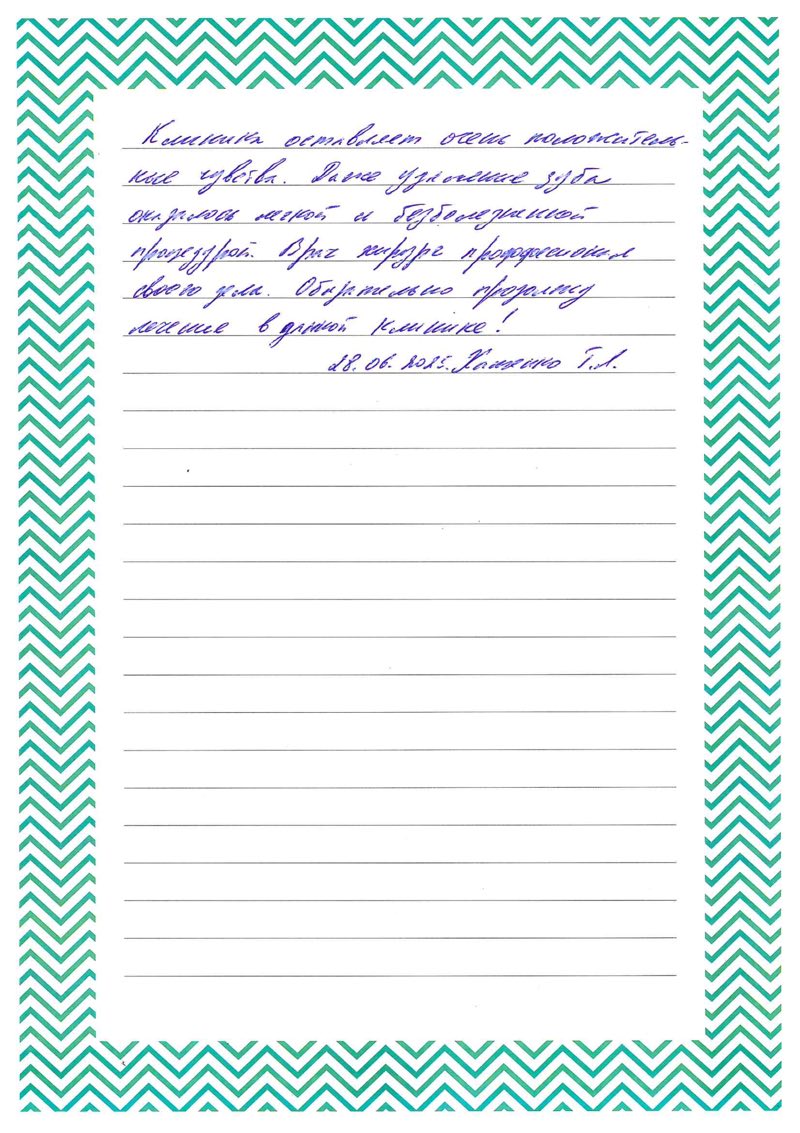 Клиника оставляет очень положитель-
ные чувства. Даже удаление зуба
оказалось легкой и безболезненной
процедурой. Врач хирург профессионал
своего дела. Обязательно продолжу
лечение в данной клинике!
28.06.2025. Т.Л.